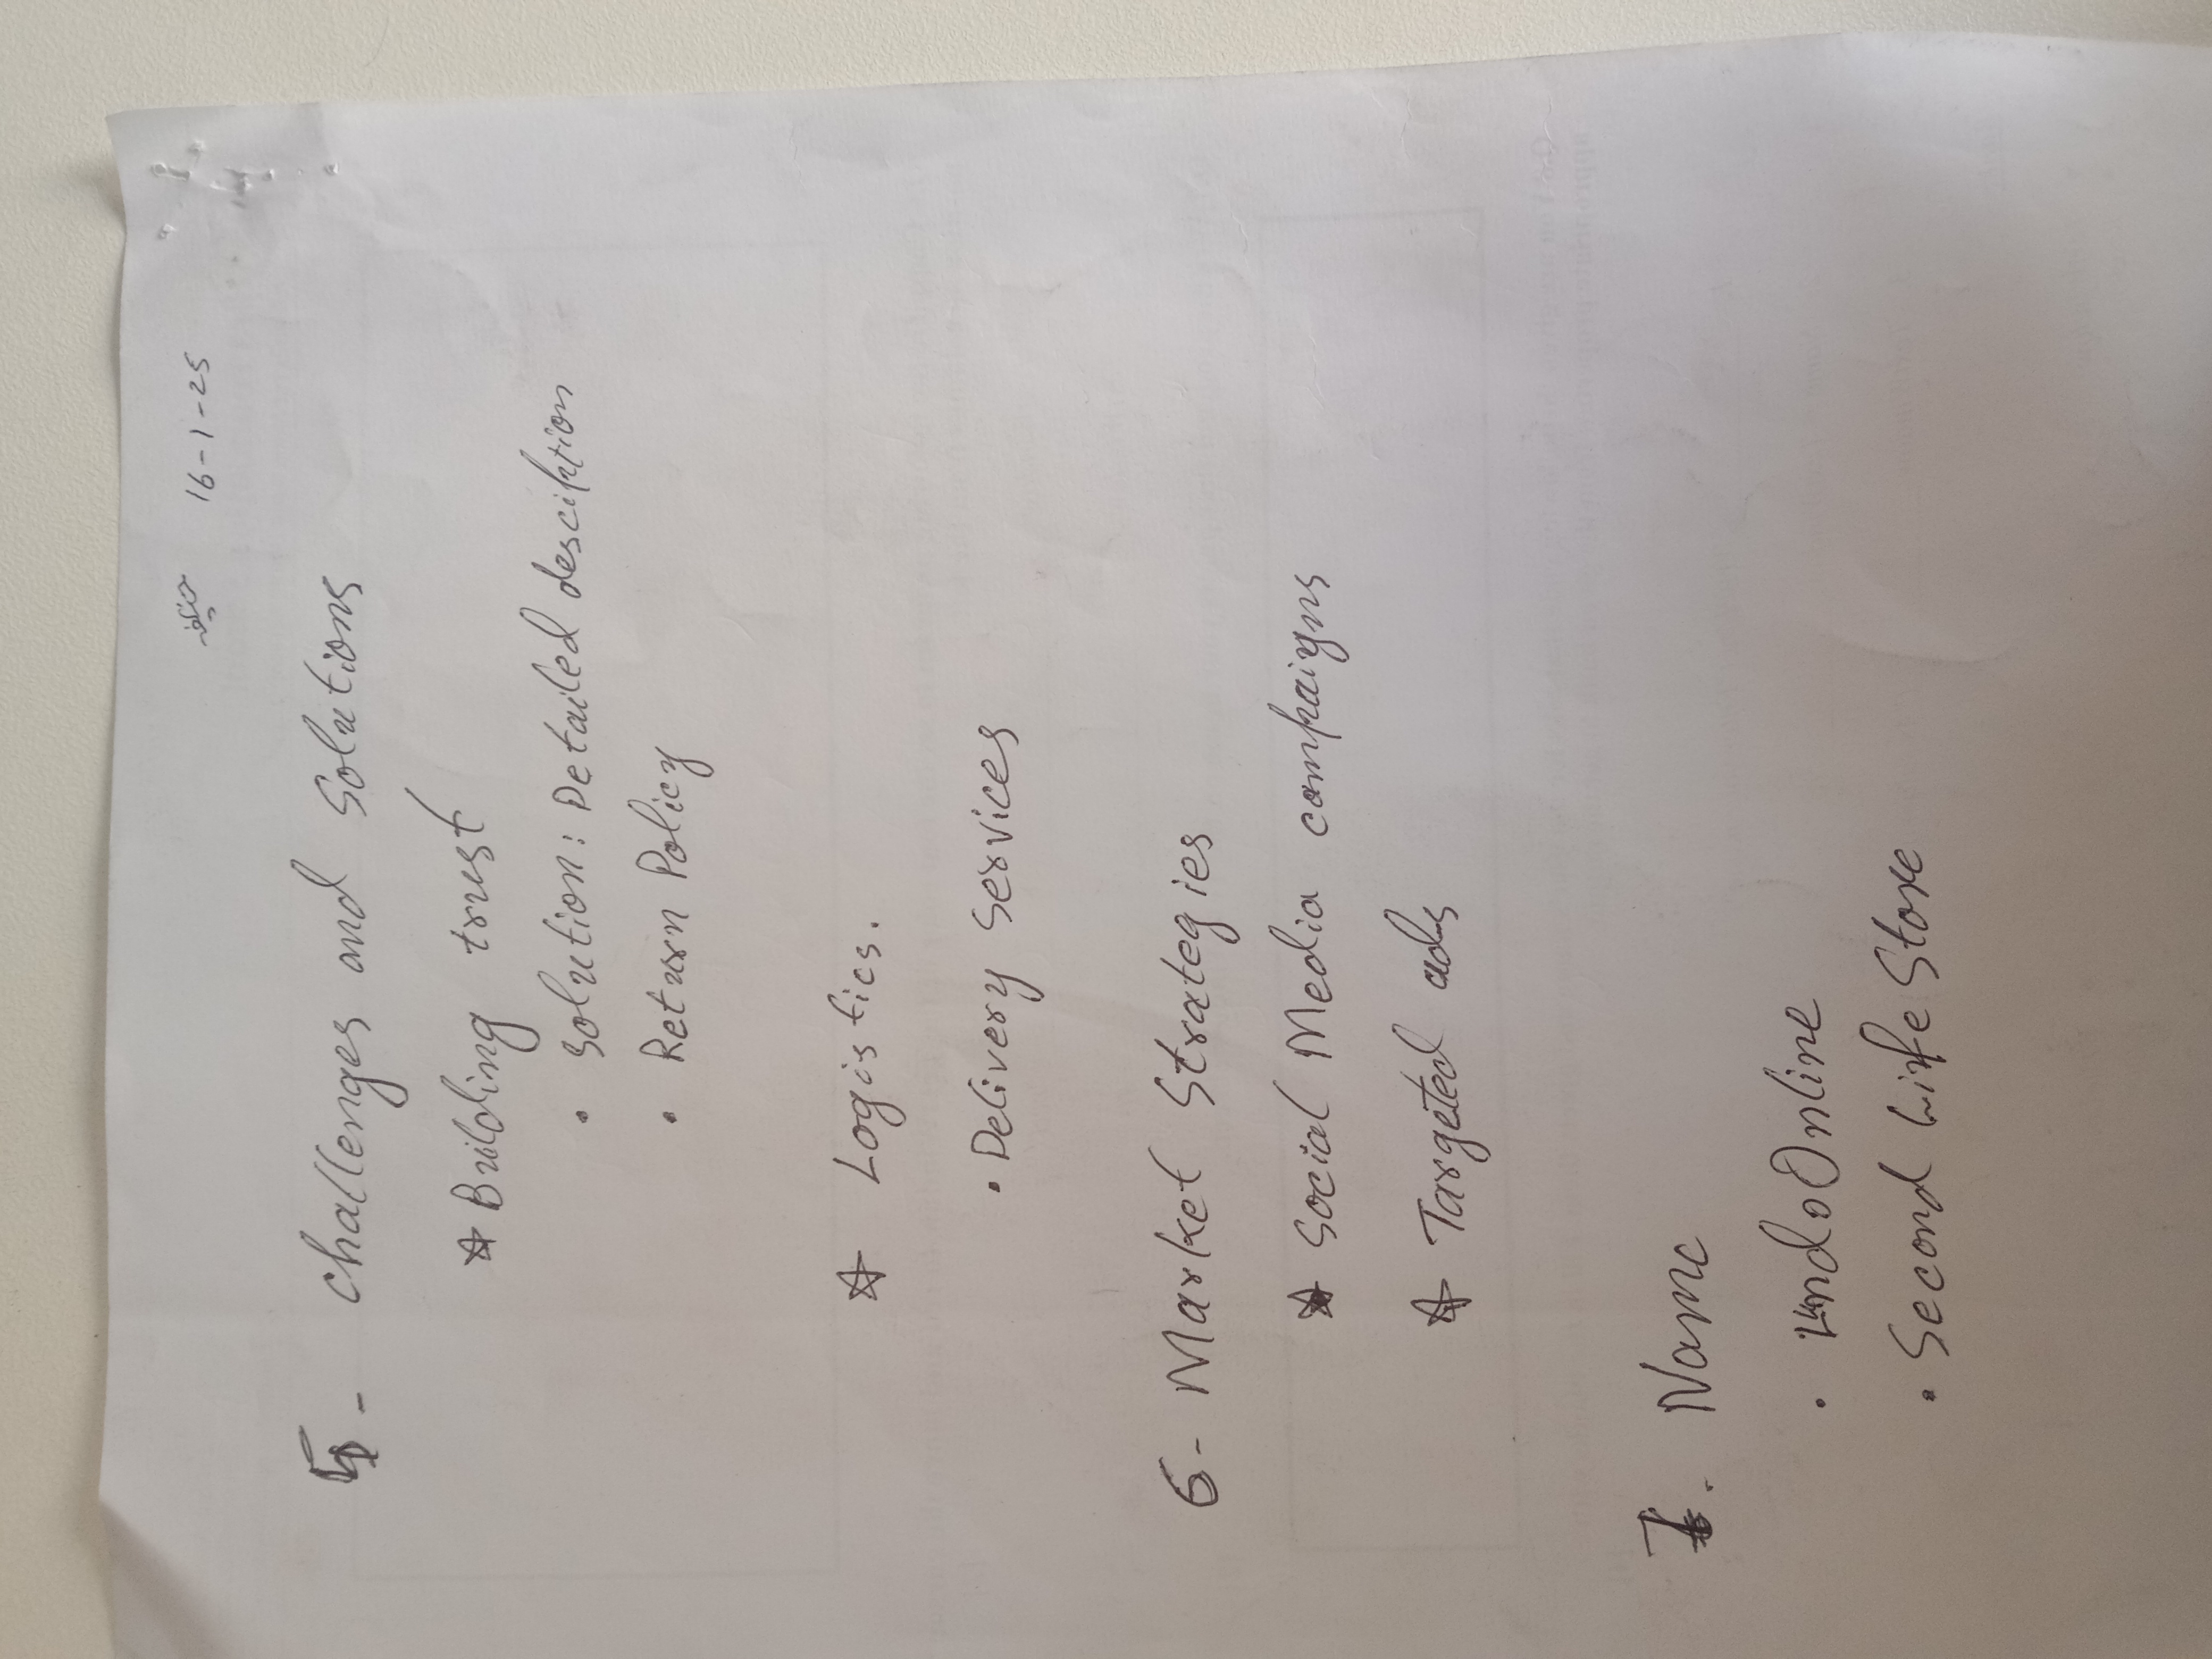 16-1-25
5- Challenges and Solutions
☆ Building trust
• Solution: Detailed desciption
• Return Policy
☆ Logistics.
• Delivery Services
6- Market Strategies
★ Social Media compaigns
☆ Targeted ads
7. Name
• UndoOnline
• Second Life Store